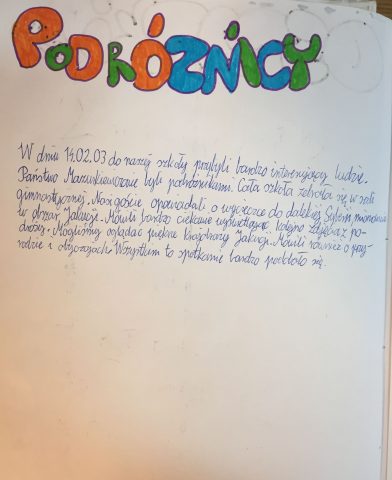 PODRÓŻNICY
W dniu 14.02.03 do naszej szkoły przybyli bardzo interesujący ludzie.
Państwo byli podróżnikami. Cała szkoła zebrała się w sali
gimnastycznej. Nasi goście opowiadali o wycieczce do dalekiej Syberii, mianowicie
w obszar Jakucji. Mówili bardzo ciekawie wyświetlając kolejno zdjęcia z po-
dróży. Mogliśmy oglądać piękne krajobrazy Jakucji. Mówili również o przy-
rodzie i obyczajach. Wszystkim to spotkanie bardzo podobało się.